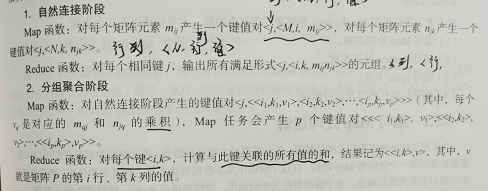 1. 自然连接阶段
Map 函数：对每个矩阵元素 mij 产生一个键值对<j,<M,i, mij>>，对每个矩阵元素 njk 产生一个
键值对<j,<N,k, njk>>。 行列，<N, 行, 值>
Reduce 函数：对每个相同键 j，输出所有满足形式<j,<i,k, mijnjk>>的元组。
2. 分组聚合阶段
Map 函数：对自然连接阶段产生的键值对<j,<<i1,k1,v1>,<i2,k2,v2>,⋯,<ip,kp,vp>>>（其中，每个
vq 是对应的 mqj 和 njq 的乘积），Map 任务会产生 p 个键值对<<< i1,k1>, v1>,<<i2,k2>,
v2>,⋯,<<ip,kp>,vp>>。
Reduce 函数：对每个键<i,k>，计算与此键关联的所有值的和，结果记为<<i,k>,v>，其中，v
就是矩阵 P 的第 i 行、第 k 列的值。